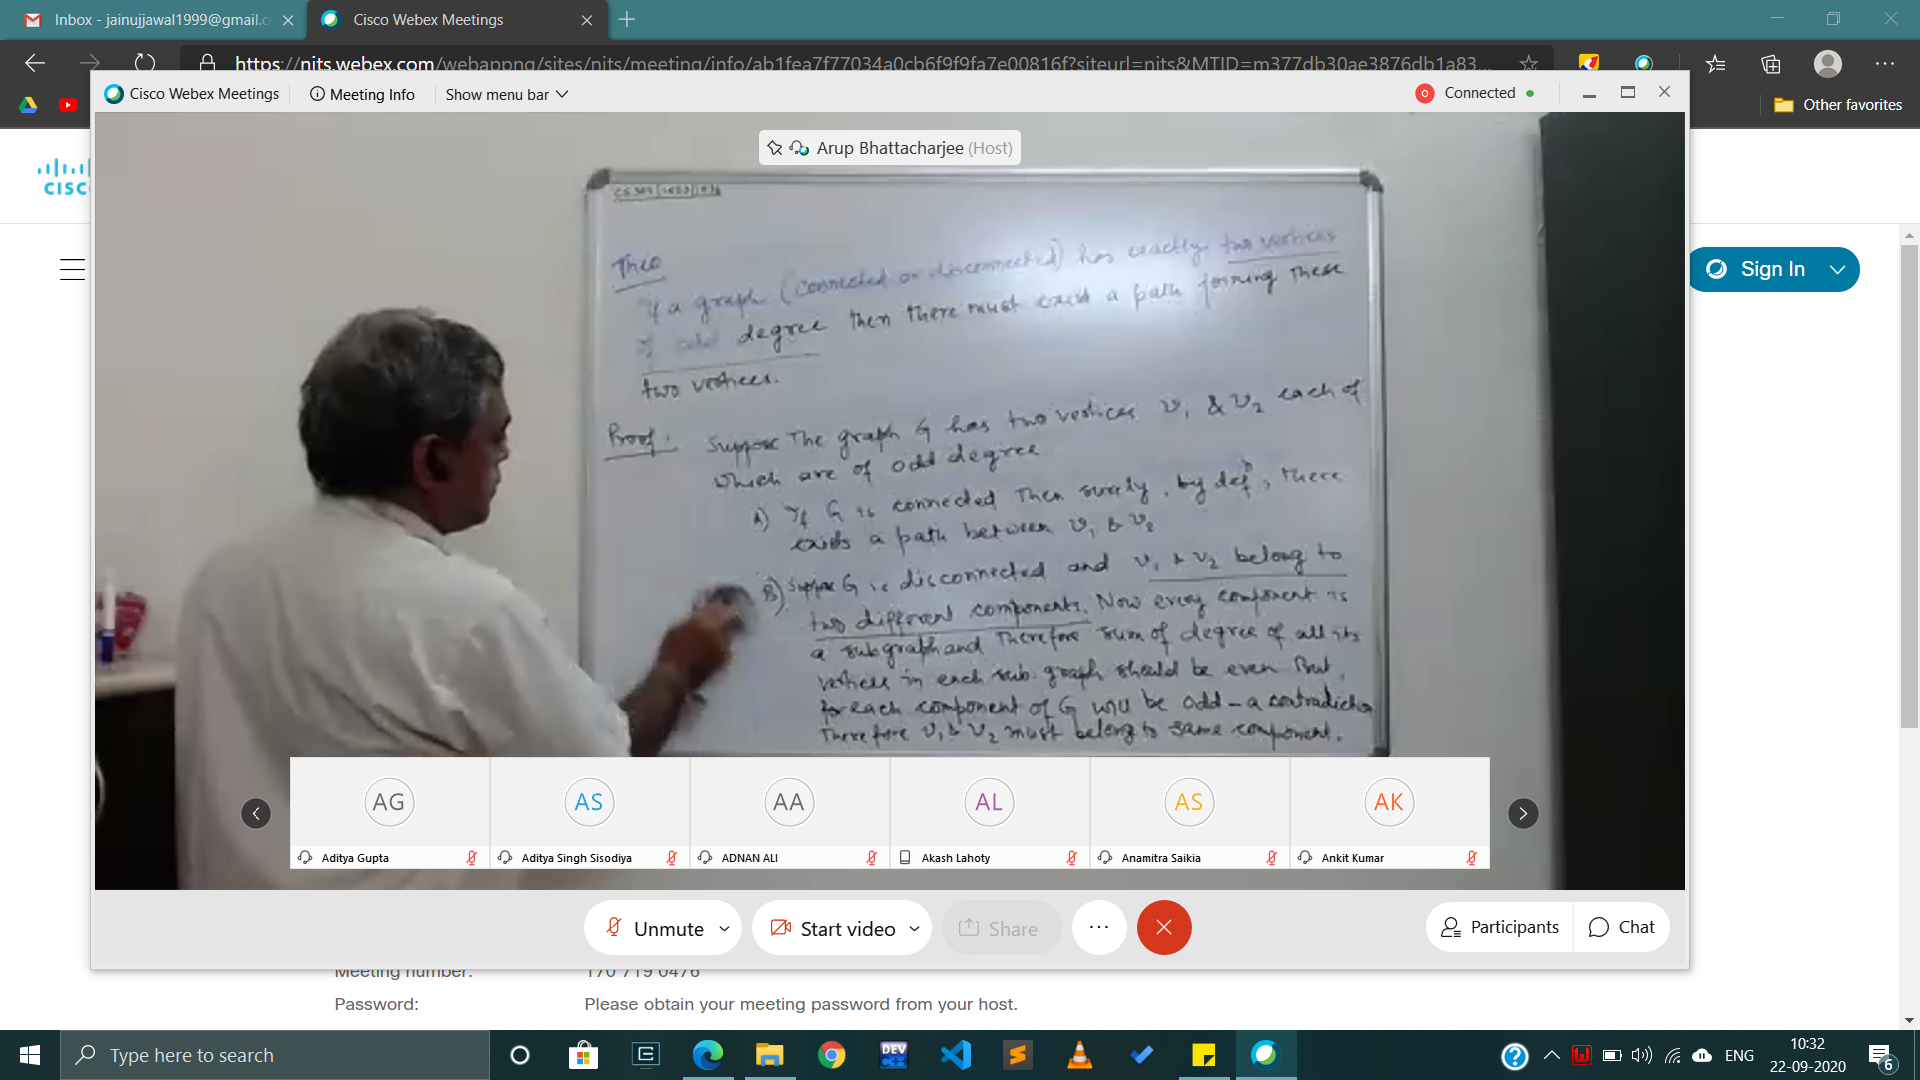 Inbox - jainujjawal1999@gmail.c
Cisco Webex Meetings
https://nits.webex.com/webappng/sites/nits/meeting/info/ab1fea7f77034a0cb6f9f9fa7e00816f?siteurl=nits&MTID=m377db30ae3876db1a83...
Other favorites
Cisco Webex Meetings
Meeting Info
Show menu bar
Connected
CISC
Sign In
Arup Bhattacharjee (Host)
Theo
If a graph (connected or disconnected) has exactly two vertices
of odd degree then there must exist a path joining these
two vertices.
Proof: Suppose The graph G has two vertices v1 & v2 each of
which are of odd degree
A) If G is connected Then surely, by defn, there
exists a path between v1 & v2
B) Suppose G is disconnected and v1 & v2 belong to
two different components. Now every component is
a subgraph and Therefore sum of degree of all its
vertices in each sub graph should be even But,
for each component of G will be odd - a contradiction
Therefore v1 & v2 must belong to same component.
AG
AS
AA
AL
AS
AK
Aditya Gupta
Aditya Singh Sisodiya
ADNAN ALI
Akash Lahoty
Anamitra Saikia
Ankit Kumar
Unmute
Start video
Share
Participants
Chat
Meeting number: 170 719 0476
Password: Please obtain your meeting password from your host.
Type here to search
DEV
ENG
10:32
22-09-2020
6